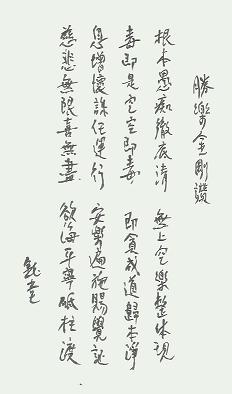 勝樂金剛讚
根本愚痴徹底清 無上空樂整体現
毒即是空空即毒 即貪成道歸本淨
息增懷誅任運行 安樂遍施賜覺
慈悲無限喜無盡 欲海平寧砥柱渡